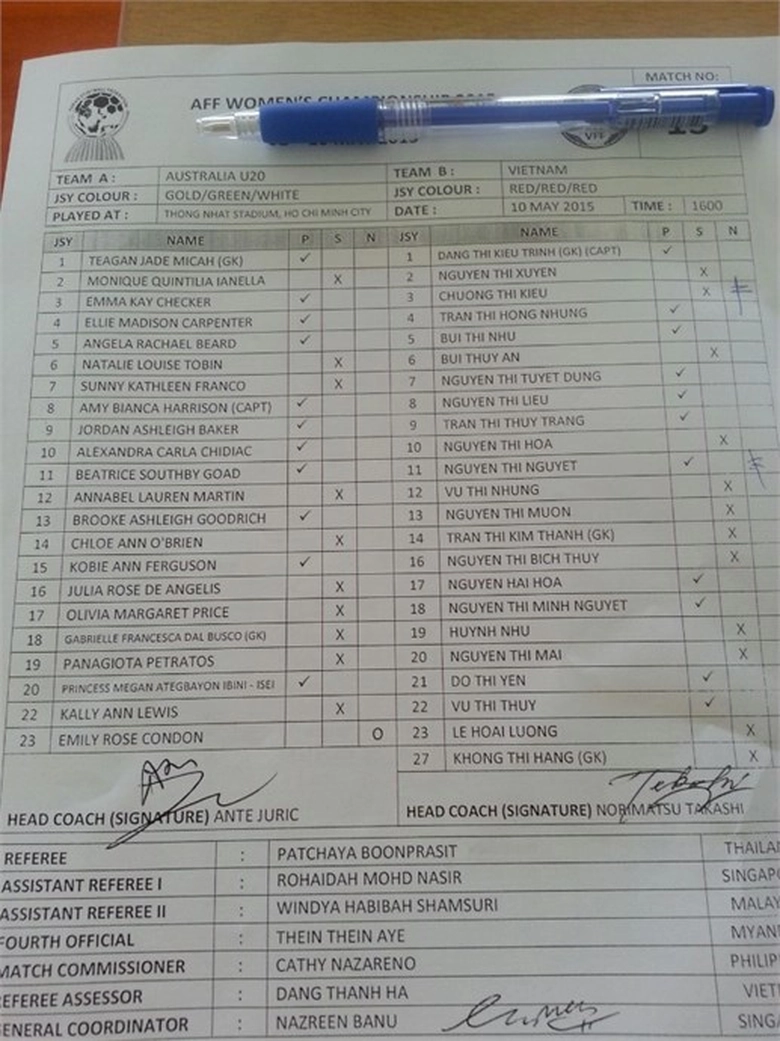 MATCH NO:
AFF WOMEN'S CHAMPIONSHIP 2015
MAY 2015
VFF
15
TEAM A : AUSTRALIA U20 TEAM B : VIETNAM
JSY COLOUR : GOLD/GREEN/WHITE JSY COLOUR : RED/RED/RED
PLAYED AT : THONG NHAT STADIUM, HO CHI MINH CITY DATE : 10 MAY 2015 TIME : 1600
JSY NAME P S N JSY NAME P S N
1 TEAGAN JADE MICAH (GK) ✓ 1 DANG THI KIEU TRINH (GK) (CAPT) ✓
2 MONIQUE QUINTILIA IANELLA X 2 NGUYEN THI XUYEN X
3 EMMA KAY CHECKER ✓ 3 CHUONG THI KIEU X
4 ELLIE MADISON CARPENTER ✓ 4 TRAN THI HONG NHUNG ✓
5 ANGELA RACHAEL BEARD ✓ 5 BUI THI NHU ✓
6 NATALIE LOUISE TOBIN X 6 BUI THUY AN X
7 SUNNY KATHLEEN FRANCO X 7 NGUYEN THI TUYET DUNG ✓
8 AMY BIANCA HARRISON (CAPT) ✓ 8 NGUYEN THI LIEU ✓
9 JORDAN ASHLEIGH BAKER ✓ 9 TRAN THI THUY TRANG ✓
10 ALEXANDRA CARLA CHIDIAC ✓ 10 NGUYEN THI HOA X
11 BEATRICE SOUTHBY GOAD ✓ 11 NGUYEN THI NGUYET ✓
12 ANNABEL LAUREN MARTIN X 12 VU THI NHUNG X
13 BROOKE ASHLEIGH GOODRICH ✓ 13 NGUYEN THI MUON X
14 CHLOE ANN O'BRIEN X 14 TRAN THI KIM THANH (GK) X
15 KOBIE ANN FERGUSON ✓ 16 NGUYEN THI BICH THUY X
16 JULIA ROSE DE ANGELIS X 17 NGUYEN HAI HOA ✓
17 OLIVIA MARGARET PRICE X 18 NGUYEN THI MINH NGUYET ✓
18 GABRIELLE FRANCESCA DAL BUSCO (GK) X 19 HUYNH NHU X
19 PANAGIOTA PETRATOS X 20 NGUYEN THI MAI X
20 PRINCESS MEGAN ATEGBAYON IBINI - ISEI ✓ 21 DO THI YEN ✓
22 KALLY ANN LEWIS X 22 VU THI THUY ✓
23 EMILY ROSE CONDON O 23 LE HOAI LUONG X
27 KHONG THI HANG (GK) X
HEAD COACH (SIGNATURE) ANTE JURIC HEAD COACH (SIGNATURE) NORIMATSU TAKASHI
REFEREE : PATCHAYA BOONPRASIT THAILAN
ASSISTANT REFEREE I : ROHAIDAH MOHD NASIR SINGAP
ASSISTANT REFEREE II : WINDYA HABIBAH SHAMSURI MALAY
FOURTH OFFICIAL : THEIN THEIN AYE MYAN
MATCH COMMISSIONER : CATHY NAZARENO PHILIP
REFEREE ASSESSOR : DANG THANH HA VIET
GENERAL COORDINATOR : NAZREEN BANU SINGA